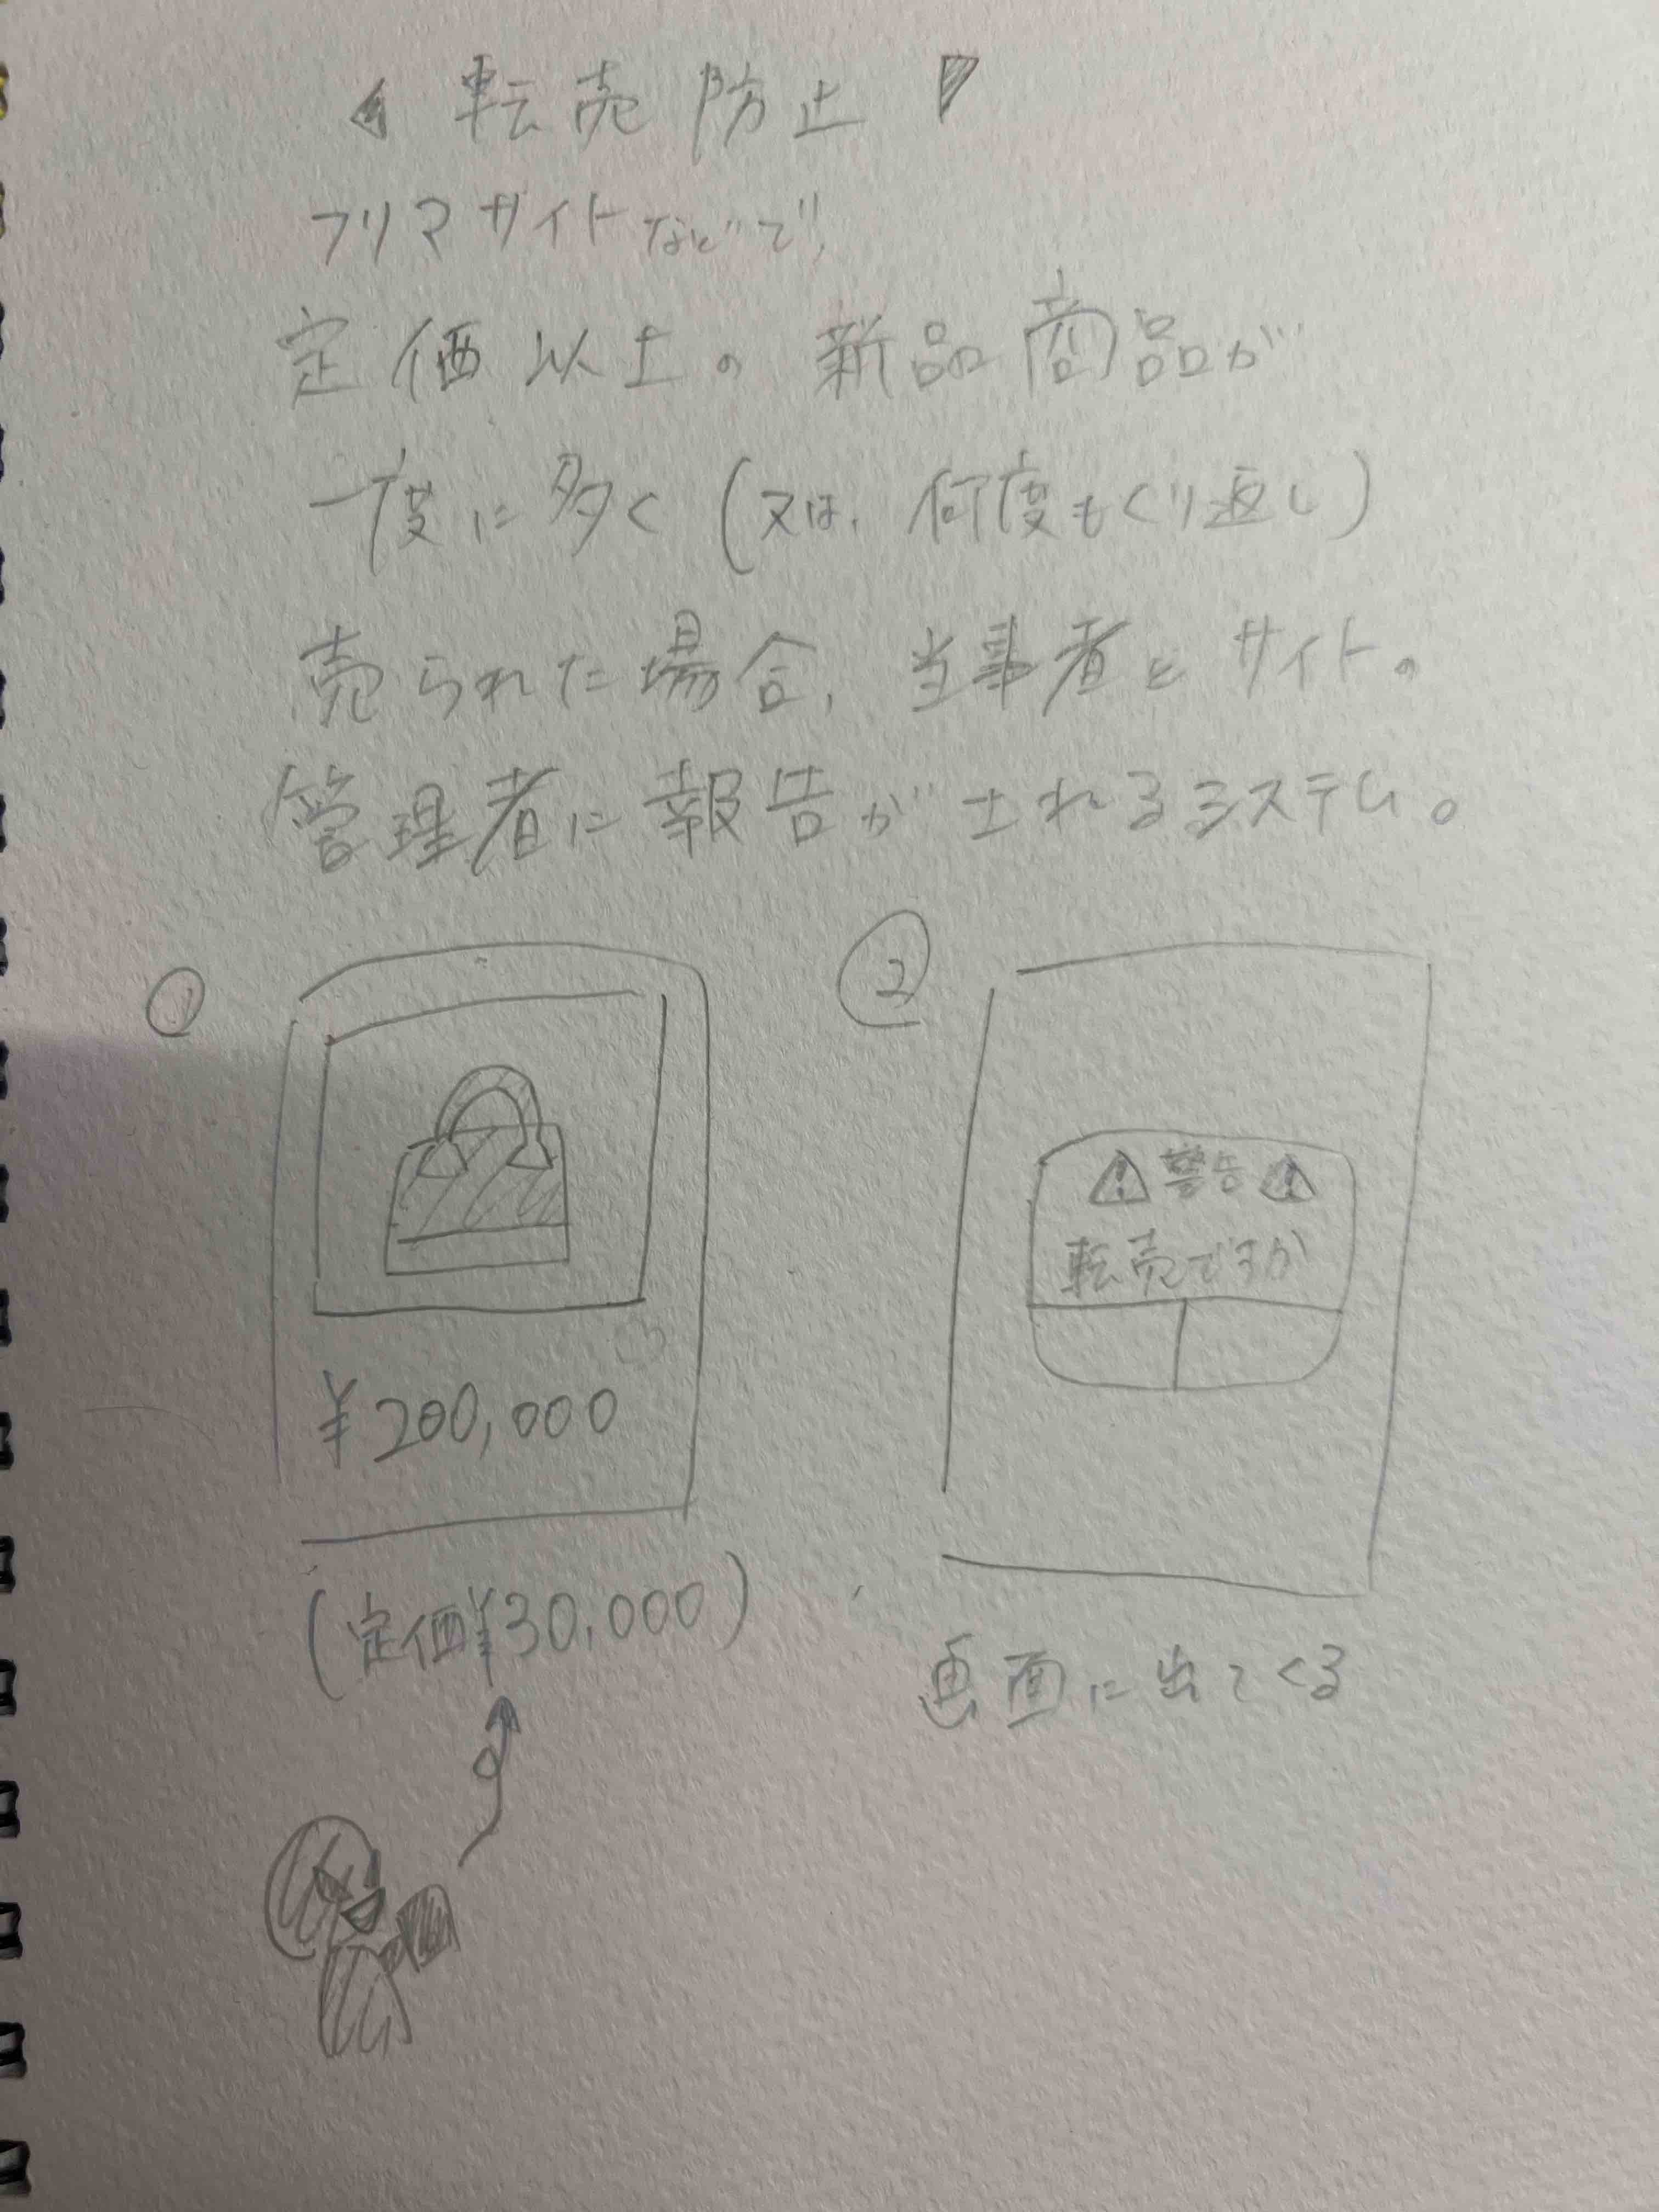 転売防止
フリマサイトなどで、
定価以上の新品商品が
一度に多く(又は、何度もくり返し)
売られた場合、当事者とサイトの
管理者に報告がされるシステム。
①
②
⚠警告⚠
転売ですか
¥200,000
(定価¥30,000)
画面に出てくる